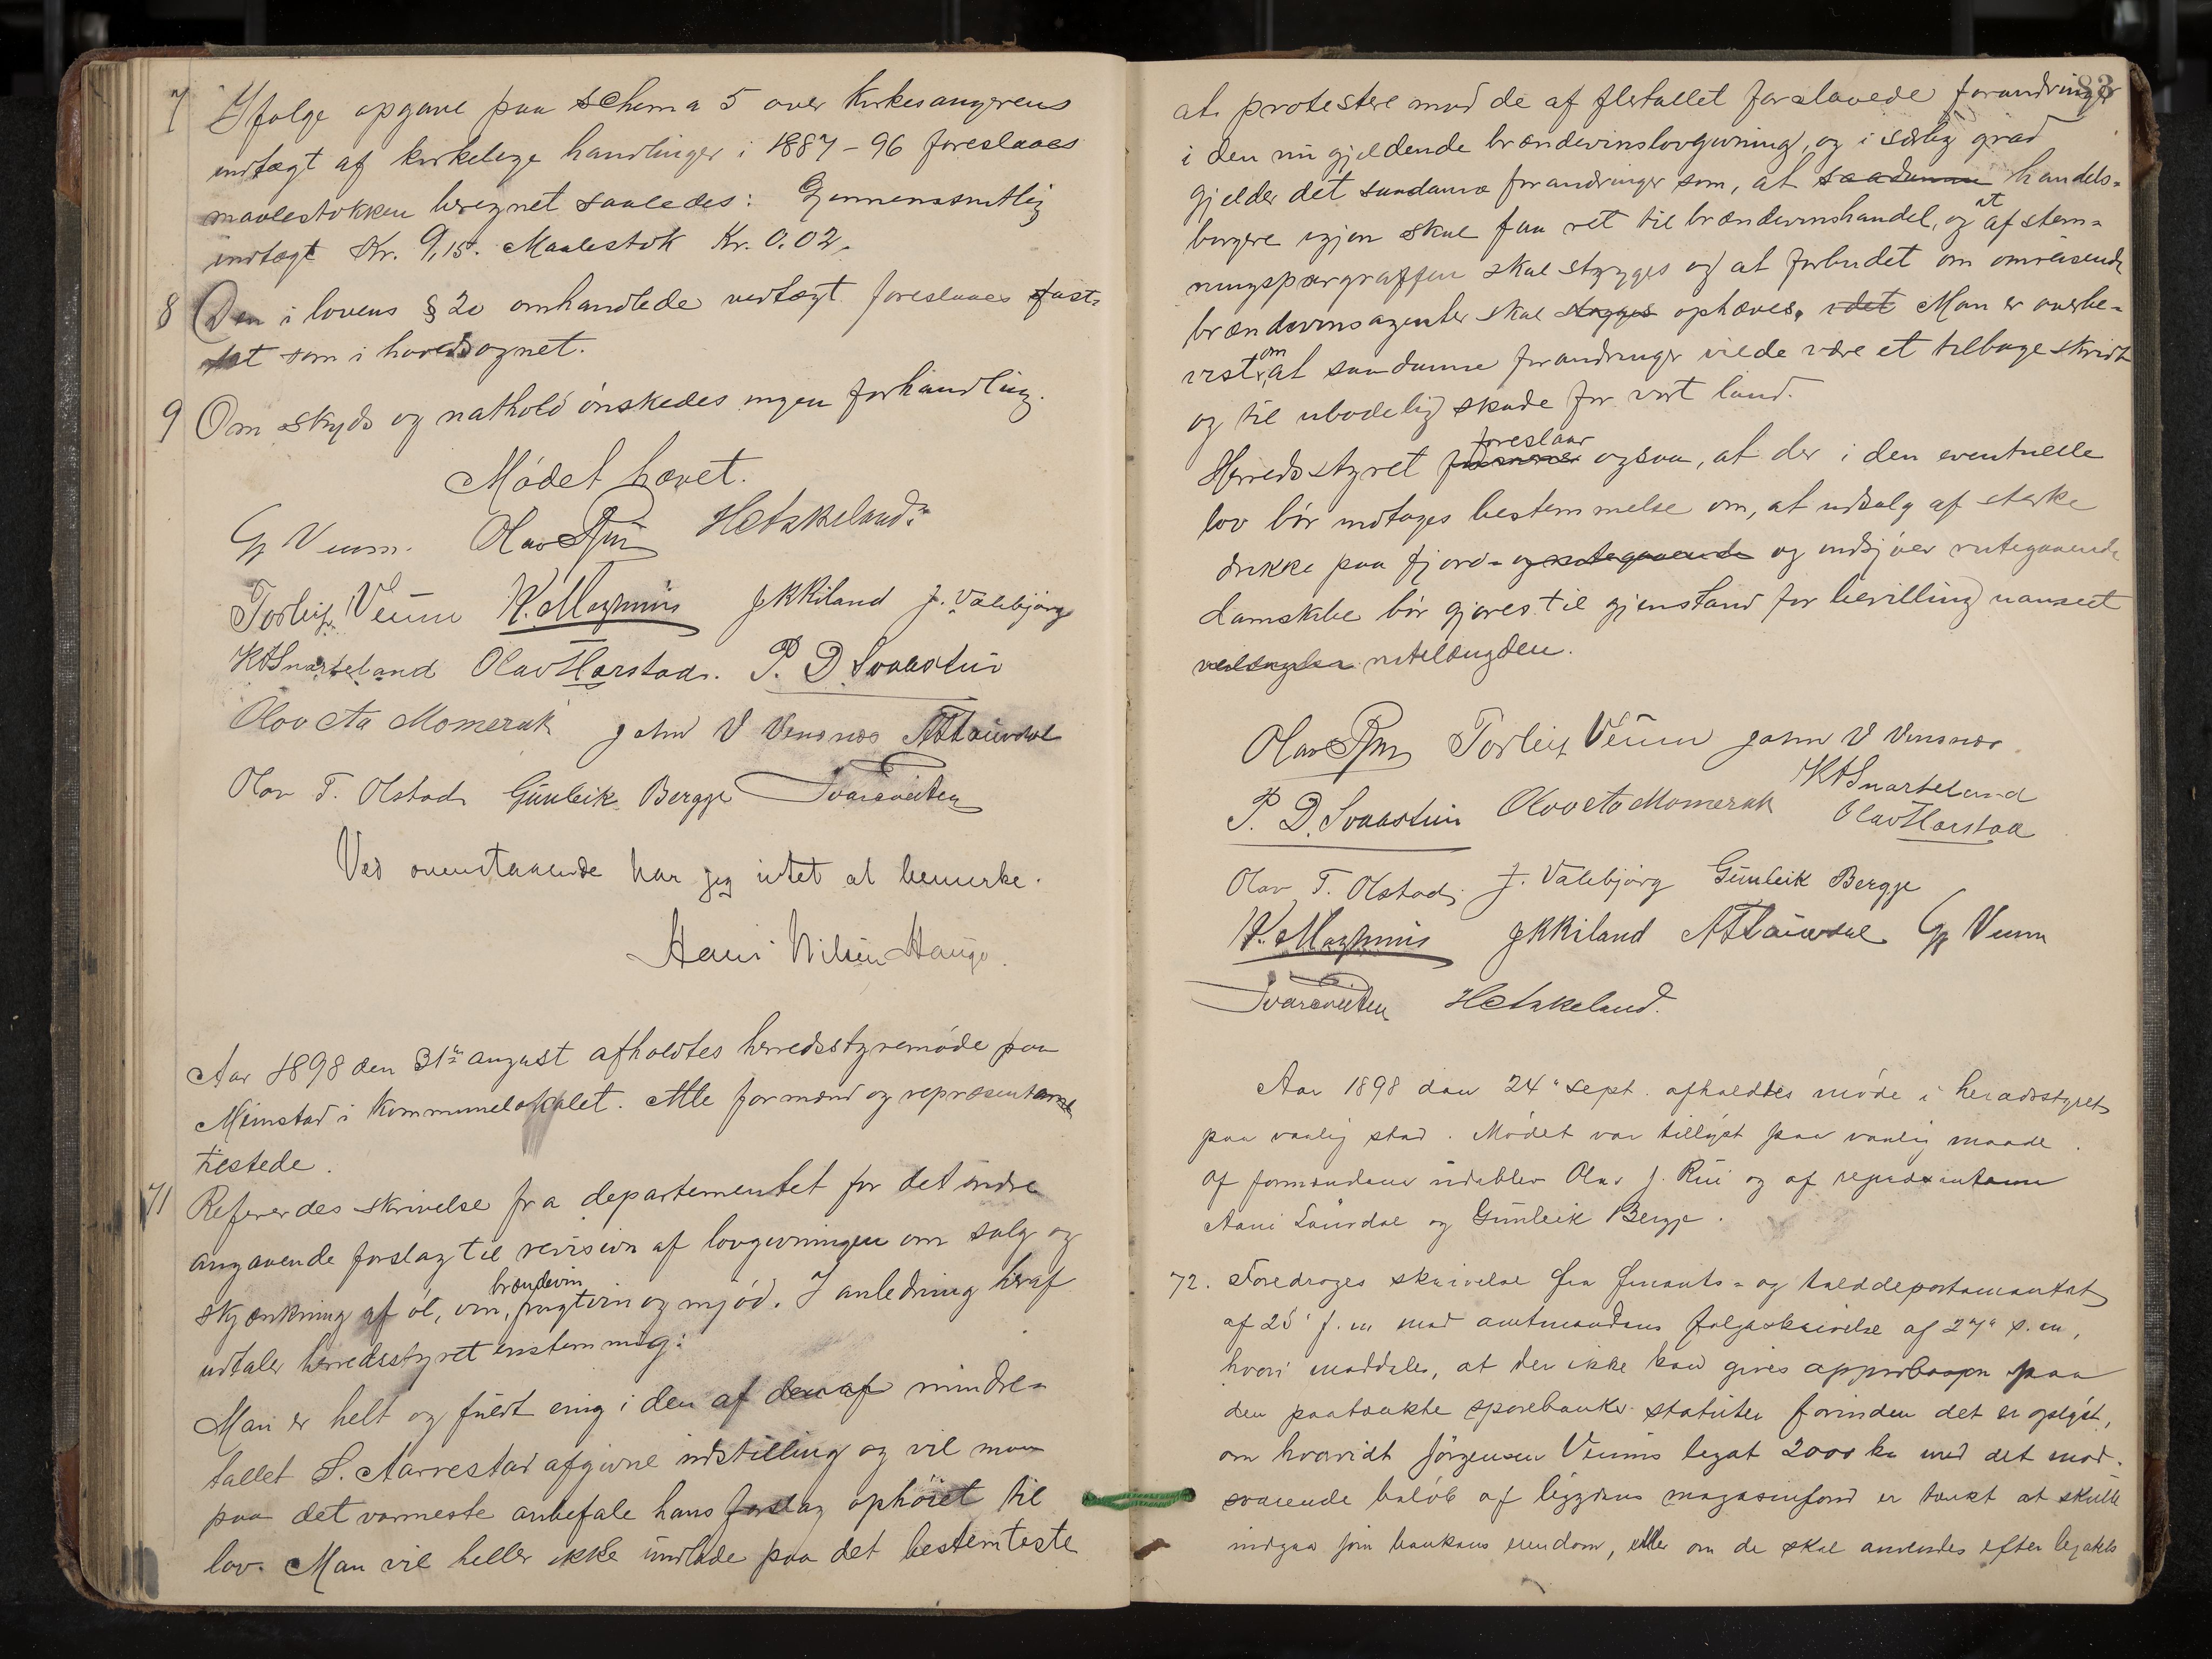 7 Ifølge opgave paa schema 5 over kirkesangerens
indtægt af kirkelige handlinger i 1887-96 foreslaaes
maalestokken beregnet saaledes: Gjennemsnitlig
indtægt Kr. 9,15. Maalestok Kr. 0.02.
8 Den i lovens § 20 omhandlede vedtægt foreslaaes fast-
sat som i hovedsognet.
9 Om skyds og nathold ønskedes ingen forhandling.
Mødet hævet.
Gp Veum. Olav Rui H Askeland.
Torleif Veum K. Moghuus J K Kiland J. Valebjørg
K A Snarteland Olav Harstad. P. D. Svaastui
Olav Aa Momrak John V Vensnes A T Lauvdal
Olav T. Olstad Gunleik Bergje Tvaraaeiten
Ved ovenstaaende har jeg intet at bemerke.
Hans Nilsen Hauge.
Aar 1898 den 31te august afholdtes herredsstyremøde paa
Meinstad i Kommunelokalet. Alle formænd og repræsentanter
tilstede.
71 Refererdes skrivelse fra departementet for det indre
angaaende forslag til revision af lovgivningen om salg og
skjænkning af øl, vin, brændevin, frugtvin og mjød. I anledning heraf
udtaler herredsstyret enstemmig:
Man er helt og fuldt enig i den af mindre-
tallet S. Aarrestad afgivne indstilling og vil man
paa det varmeste anbefale hans forslag ophøiet til
lov. Man vil heller ikke undlade paa det bestemteste
83
at protestere mod de af flertallet foreslaaede forandringer
i den nu gjeldende brændevinslovgivning, og i særlig grad
gjelder det saadanne forandringer som, at saadanne handels-
borgere igjen skal faa ret til brændevinshandel, og at afstem-
ningspargraffen skal stryges og at forbudet om omreisende
brændevinsagenter skal stryges ophæves, idet Man er overbe-
vist om, at saadanne forandringer vilde være et tilbageskridt
og til ubodelig skade for vort land.
Herredsstyret foreslaar ogsaa, at der i den eventuelle
lov bør indtages bestemmelse om, at udsalg af sterke
drikke paa fjord- og rutegaaende og indsjøer rutegaaende
damskibe bør gjøres til gjenstand for bevilling uanseet
rutelængden.
Olav Rui Torleif Veum John V Vensnes
K A Snarteland
P. D. Svaastui Olav Aa Momrak Olav Harstad
Olav T. Olstad J. Valebjørg Gunleik Bergje
K. Moghuus J K Kiland A T Lauvdal Gp Veum
Tvaraaeiten H Askeland.
Aar 1898 den 24de sept. afholdtes møde i heradsstyret
paa vanlig stad. Mødet var tillyst paa vanlig maade.
Af formændene udeblev Olav J. Rui og af repræsentanterne
Aani Lauvdal og Gunleik Bergje.
72. Foredroges skrivelse fra finants- og tolddepartamentet
af 25' f. m med amtmandens følgeskrivelse af 27de s. m,
hvori meddeles, at der ikke kan gives approbasjon paa
den paatænkte sparebanks statuter forinden det er oplyst,
om hvorvidt Jørgensen Veums legat 2000 kr med det mod-
svarende beløb af bygdens magasinfond er tænkt at skulle
indgaa som bankens eiendom, eller om de skal anvendes efter legatets